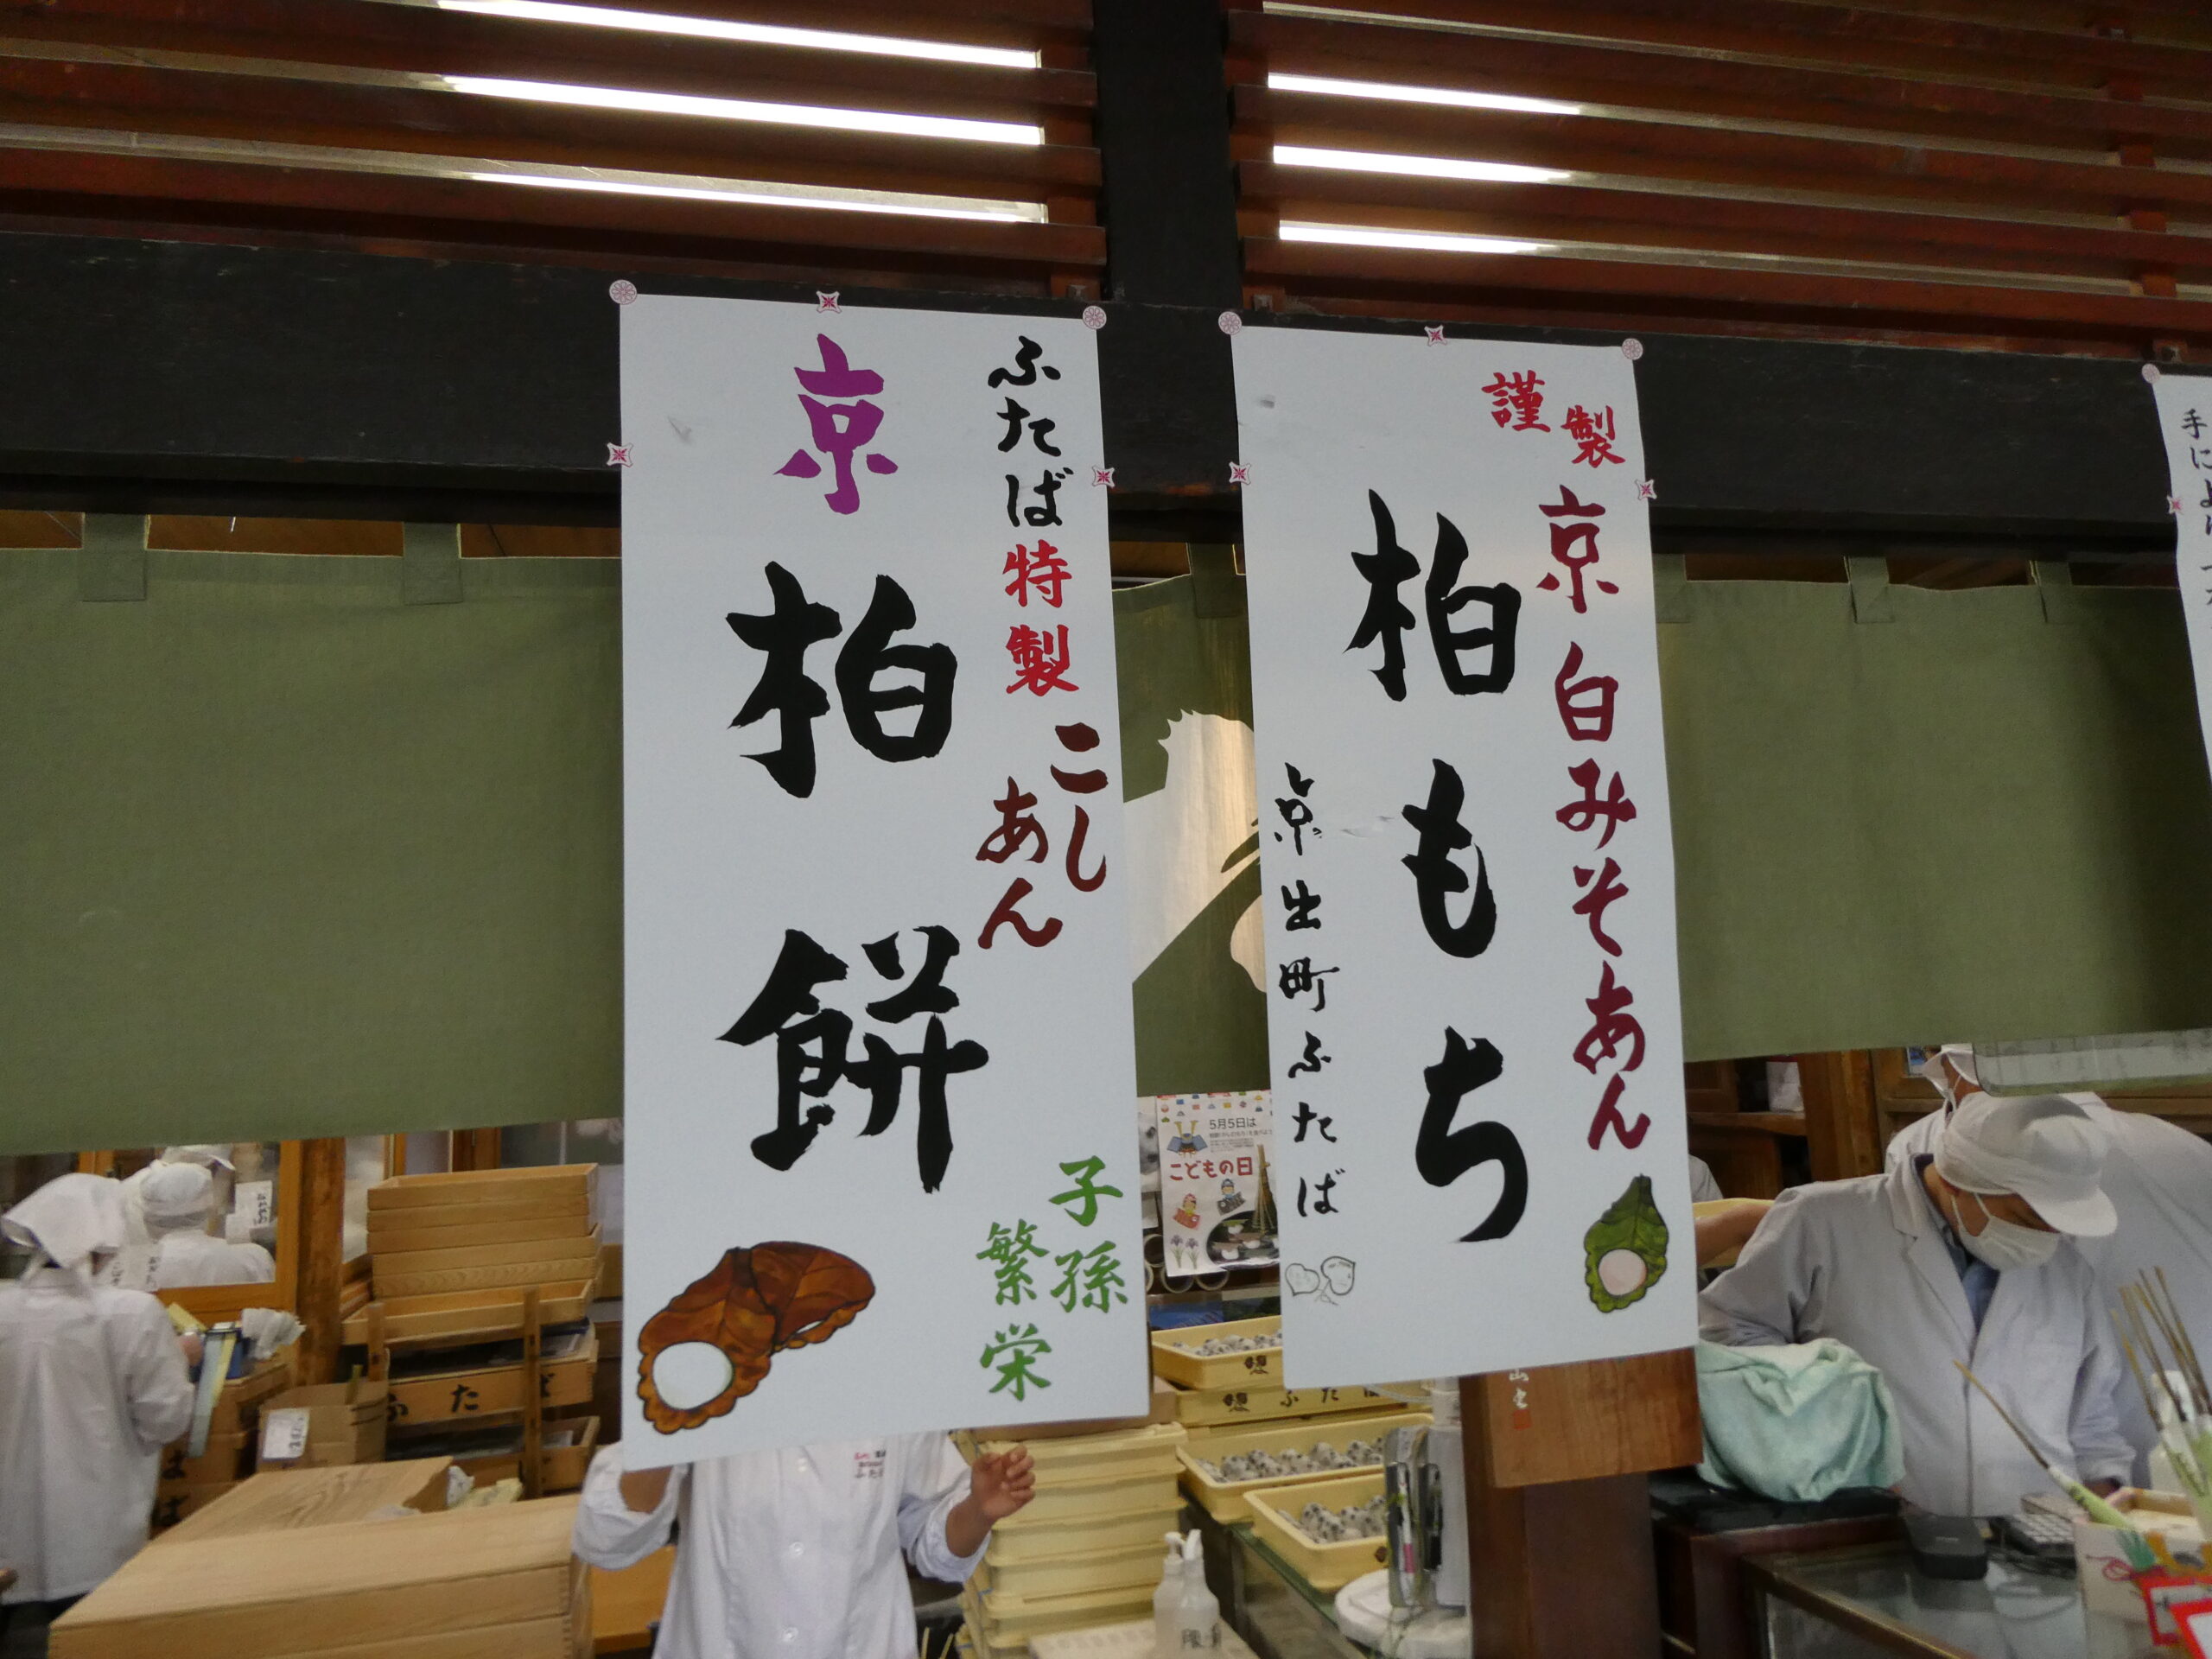 謹製
京白みそあん
柏もち
京出町ふたば
ふたば特製
こしあん
京柏餅
子孫繁栄
5月5日は
こどもの日
ふたば
ふたば